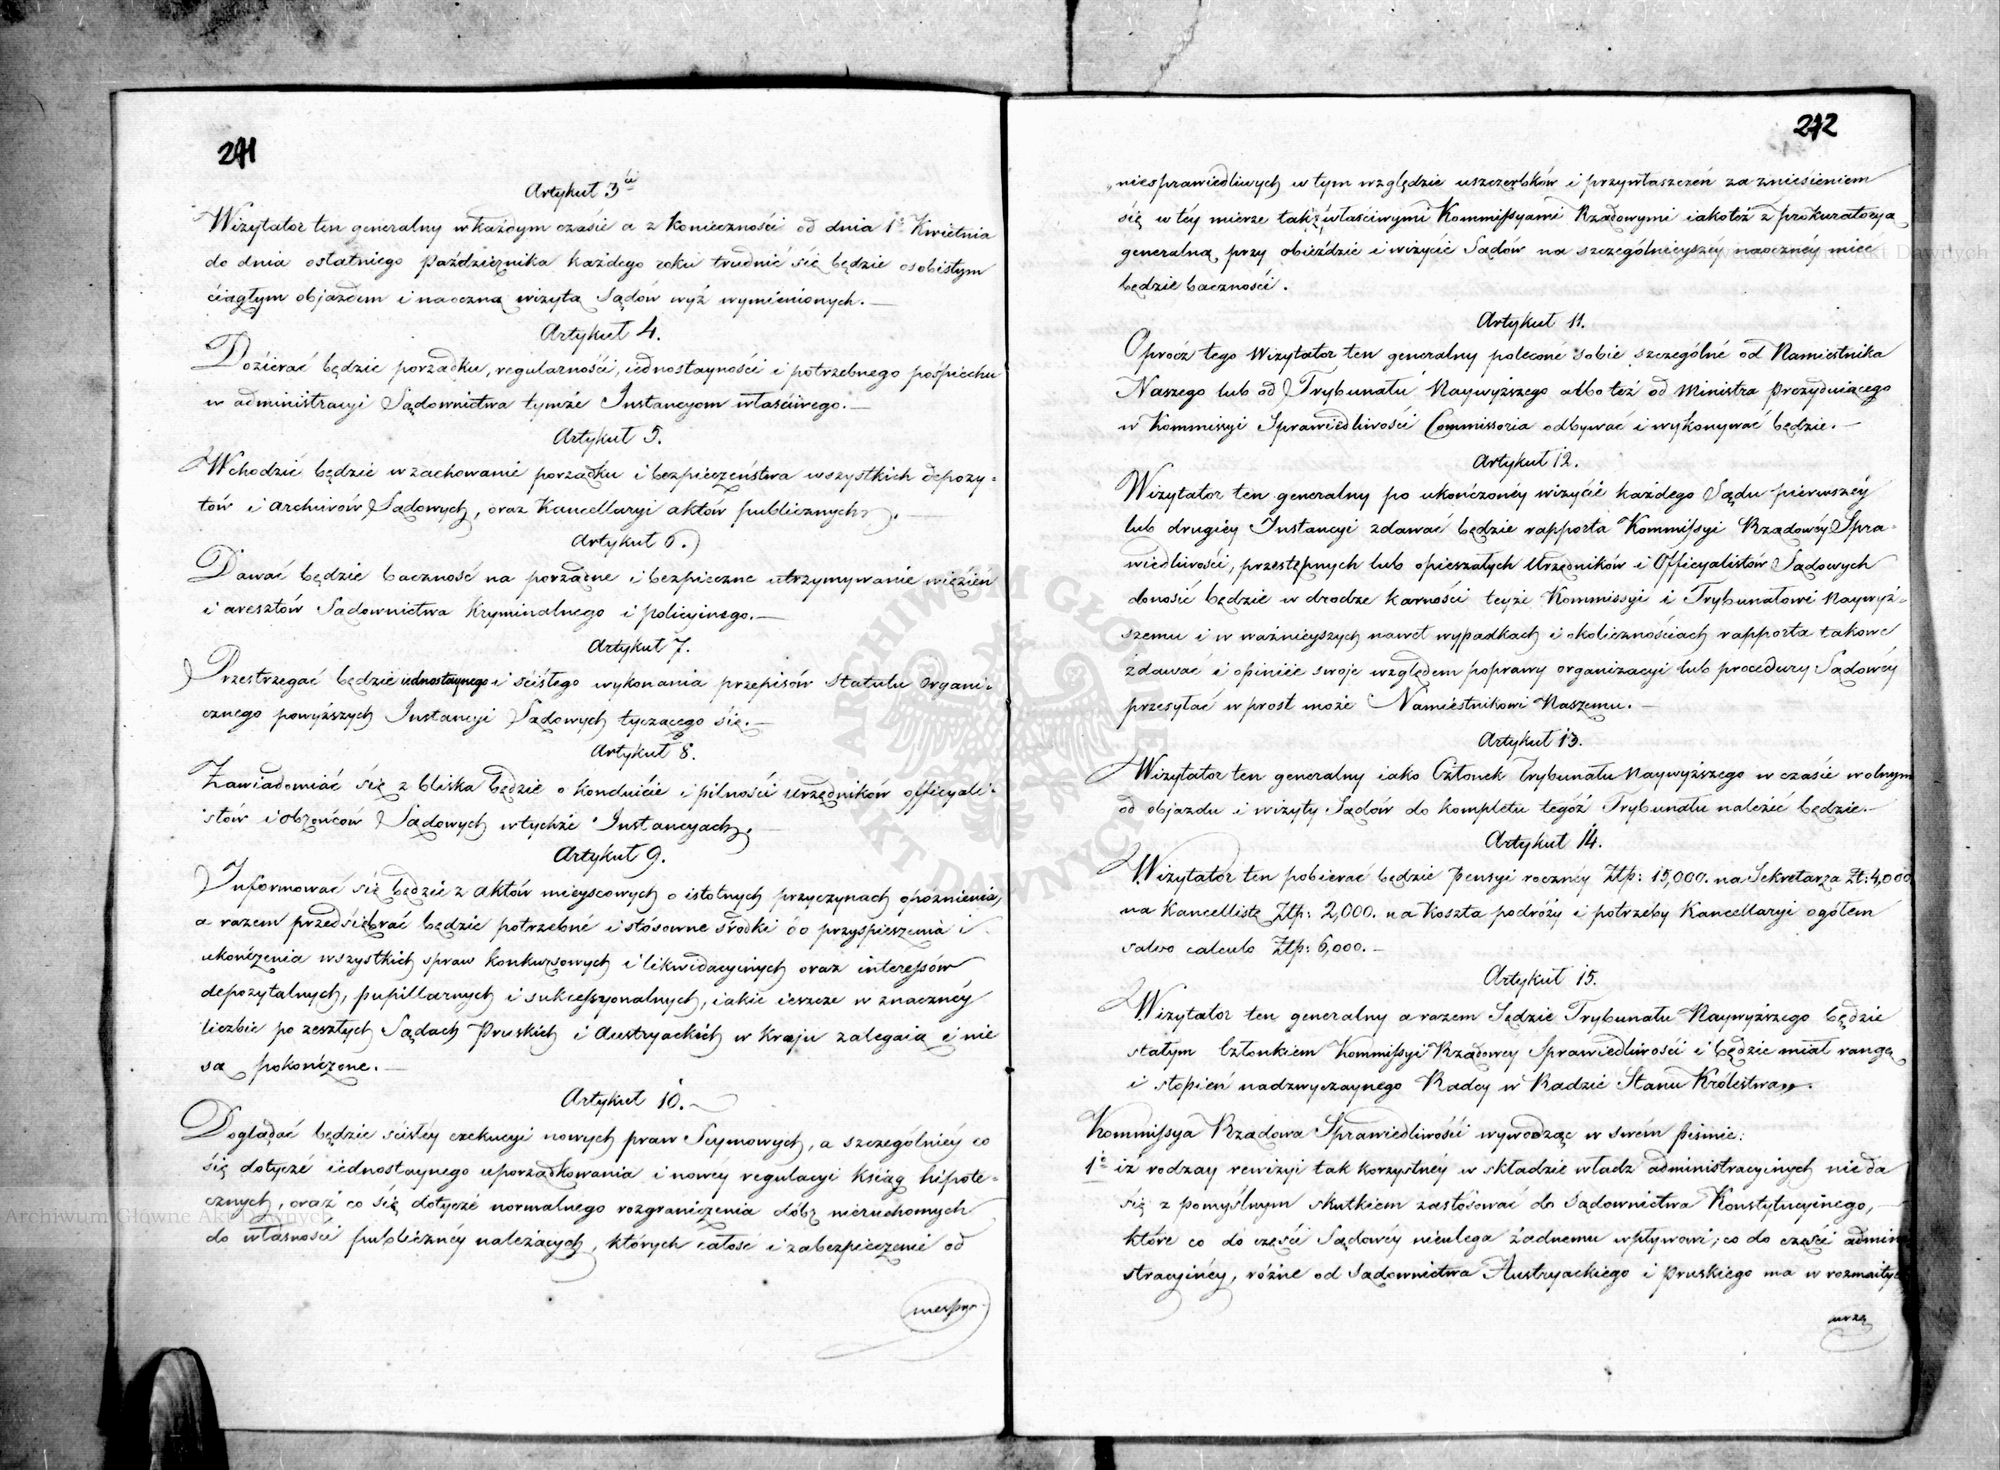 271
Artykuł 3ci
Wizytator ten generalny w każdym czasie a z konieczności od dnia 1o Kwietnia
do dnia ostatniego Października każdego roku trudnić się będzie osobistym
ciągłym objazdem i naoczną wizytą Sądów wyż wymienionych.—
Artykuł 4.
Dozierać będzie porządku, regularności, iednostayności i potrzebnego pośpiechu
w administracyi Sądownictwa tymże Instancyom właściwego.—
Artykuł 5.
Wchodzić będzie w zachowanie porządku i bezpieczeństwa wszystkich depozy-
tów i archiwów Sądowych, oraz Kancellaryi aktów publicznych.—
Artykuł 6.
Dawać będzie baczność na porządne i bezpieczne utrzymywanie więzień
i aresztów Sądownictwa Kryminalnego i policyinego.—
Artykuł 7.
Przestrzegać będzie iednostaynego i ścisłego wykonania przepisów Statutu Organi-
cznego powyższych Instancyi Sądowych tyczącego się.—
Artykuł 8.
Zawiadomiać się z bliska będzie o konduicie i pilności urzędników officyali-
stów i obrońców Sądowych w tychże Instancyach.—
Artykuł 9.
Informować się będzie z aktów mieyscowych o istotnych przyczynach opóźnienia,
a razem przedsiębrać będzie potrzebne i stósowne środki do przyspieszenia i
ukończenia wszystkich spraw konkursowych i likwidacyinych oraz interessów
depozytalnych, pupillarnych i sukcessyonalnych, iakie ieszcze w znacznéy
liczbie po zeszłych Sądach Pruskich i Austryackich w kraju zalegaią i nie
są pokończone.—
Artykuł 10.
Doglądać będzie ścisłéy exekucyi nowych praw Seymowych, a szczególniéy co
się dotycze iednostaynego uporządkowania i nowey regulacyi ksiąg hipote-
cznych, oraz co się dotycze normalnego rozgraniczenia dóbr nieruchomych
do własności publicznéy należących, których całość i zabezpieczenie od
niespra-
272
niesprawiedliwych w tym względzie uszczerbków i przywłaszczeń za zniesieniem
się w téy mierze tak z właściwymi Kommissyami Rządowymi iakotéż z prokuratoryą
generalną, przy obieździe i wizycie Sądów na szczególnieyszéy naocznéy miec
będzie baczności.
Artykuł 11.
Oprócz tego Wizytator ten generalny polecone sobie szczególné od Namiestnika
Naszego lub od Trybunału Naywyższego albo téż od Ministra Prezyduiącego
w Kommissyi Sprawiedliwości Commissoria odbywać i wykonywać będzie.—
Artykuł 12.
Wizytator ten generalny po ukończonéy wizycie każdego Sądu pierwszéy
lub drugiéy Instancyi zdawać będzie rapporta Kommissyi Rządowéy Spra-
wiedliwości, przestępnych lub opieszałych Urzędników i Officyalistów Sądowych
donosić będzie w drodze karności teyże Kommissyi i Trybunałowi Naywyż-
szemu i w ważnieyszych nawet wypadkach i okolicznościach rapporta takowe
zdawać i opinie swoje względem poprawy organizacyi lub procedury Sądowéy
przesyłać w prost może Namiestnikowi Naszemu.—
Artykuł 13.
Wizytator ten generalny iako Członek Trybunału Naywyższego w czasie wolnym
od objazdu i wizyty Sądów do kompletu tegóż Trybunału należeć będzie.—
Artykuł 14.
Wizytator ten pobierać będzie Pensyi rocznéy Złp: 15,000. na Sekretarza Zł: 4,000
na Kancellistę Złp: 2,000. na Koszta podróży i potrzeby Kancellaryi ogółem
salvo calculo Złp: 6,000.—
Artykuł 15.
Wizytator ten generalny a razem Sędzie Trybunału Naywyższego będzie
stałym Członkiem Kommissyi Rządowey Sprawiedliwości i będzie miał rangę
i stopień nadzwyczaynego Radcy w Radzie Stanu Królestwa.
Kommissya Rządowa Sprawiedliwości wywodząc w swém piśmie:
1o iż rodzay rewizyi tak korzystnéy w składzie władz administracyinych nie da
się z pomyślnym skutkiem zastósować do Sądownictwa Konstytucyinego,—
które co do części Sądowéy nieulega żadnemu wpływowi; co do części admini
stracyinéy, różne od Sądownictwa Austryackiego i Pruskiego ma w rozmaitych
urzą
ARCHIWUM GŁÓWNE AKT DAWNYCH
Archiwum Główne Akt Dawnych